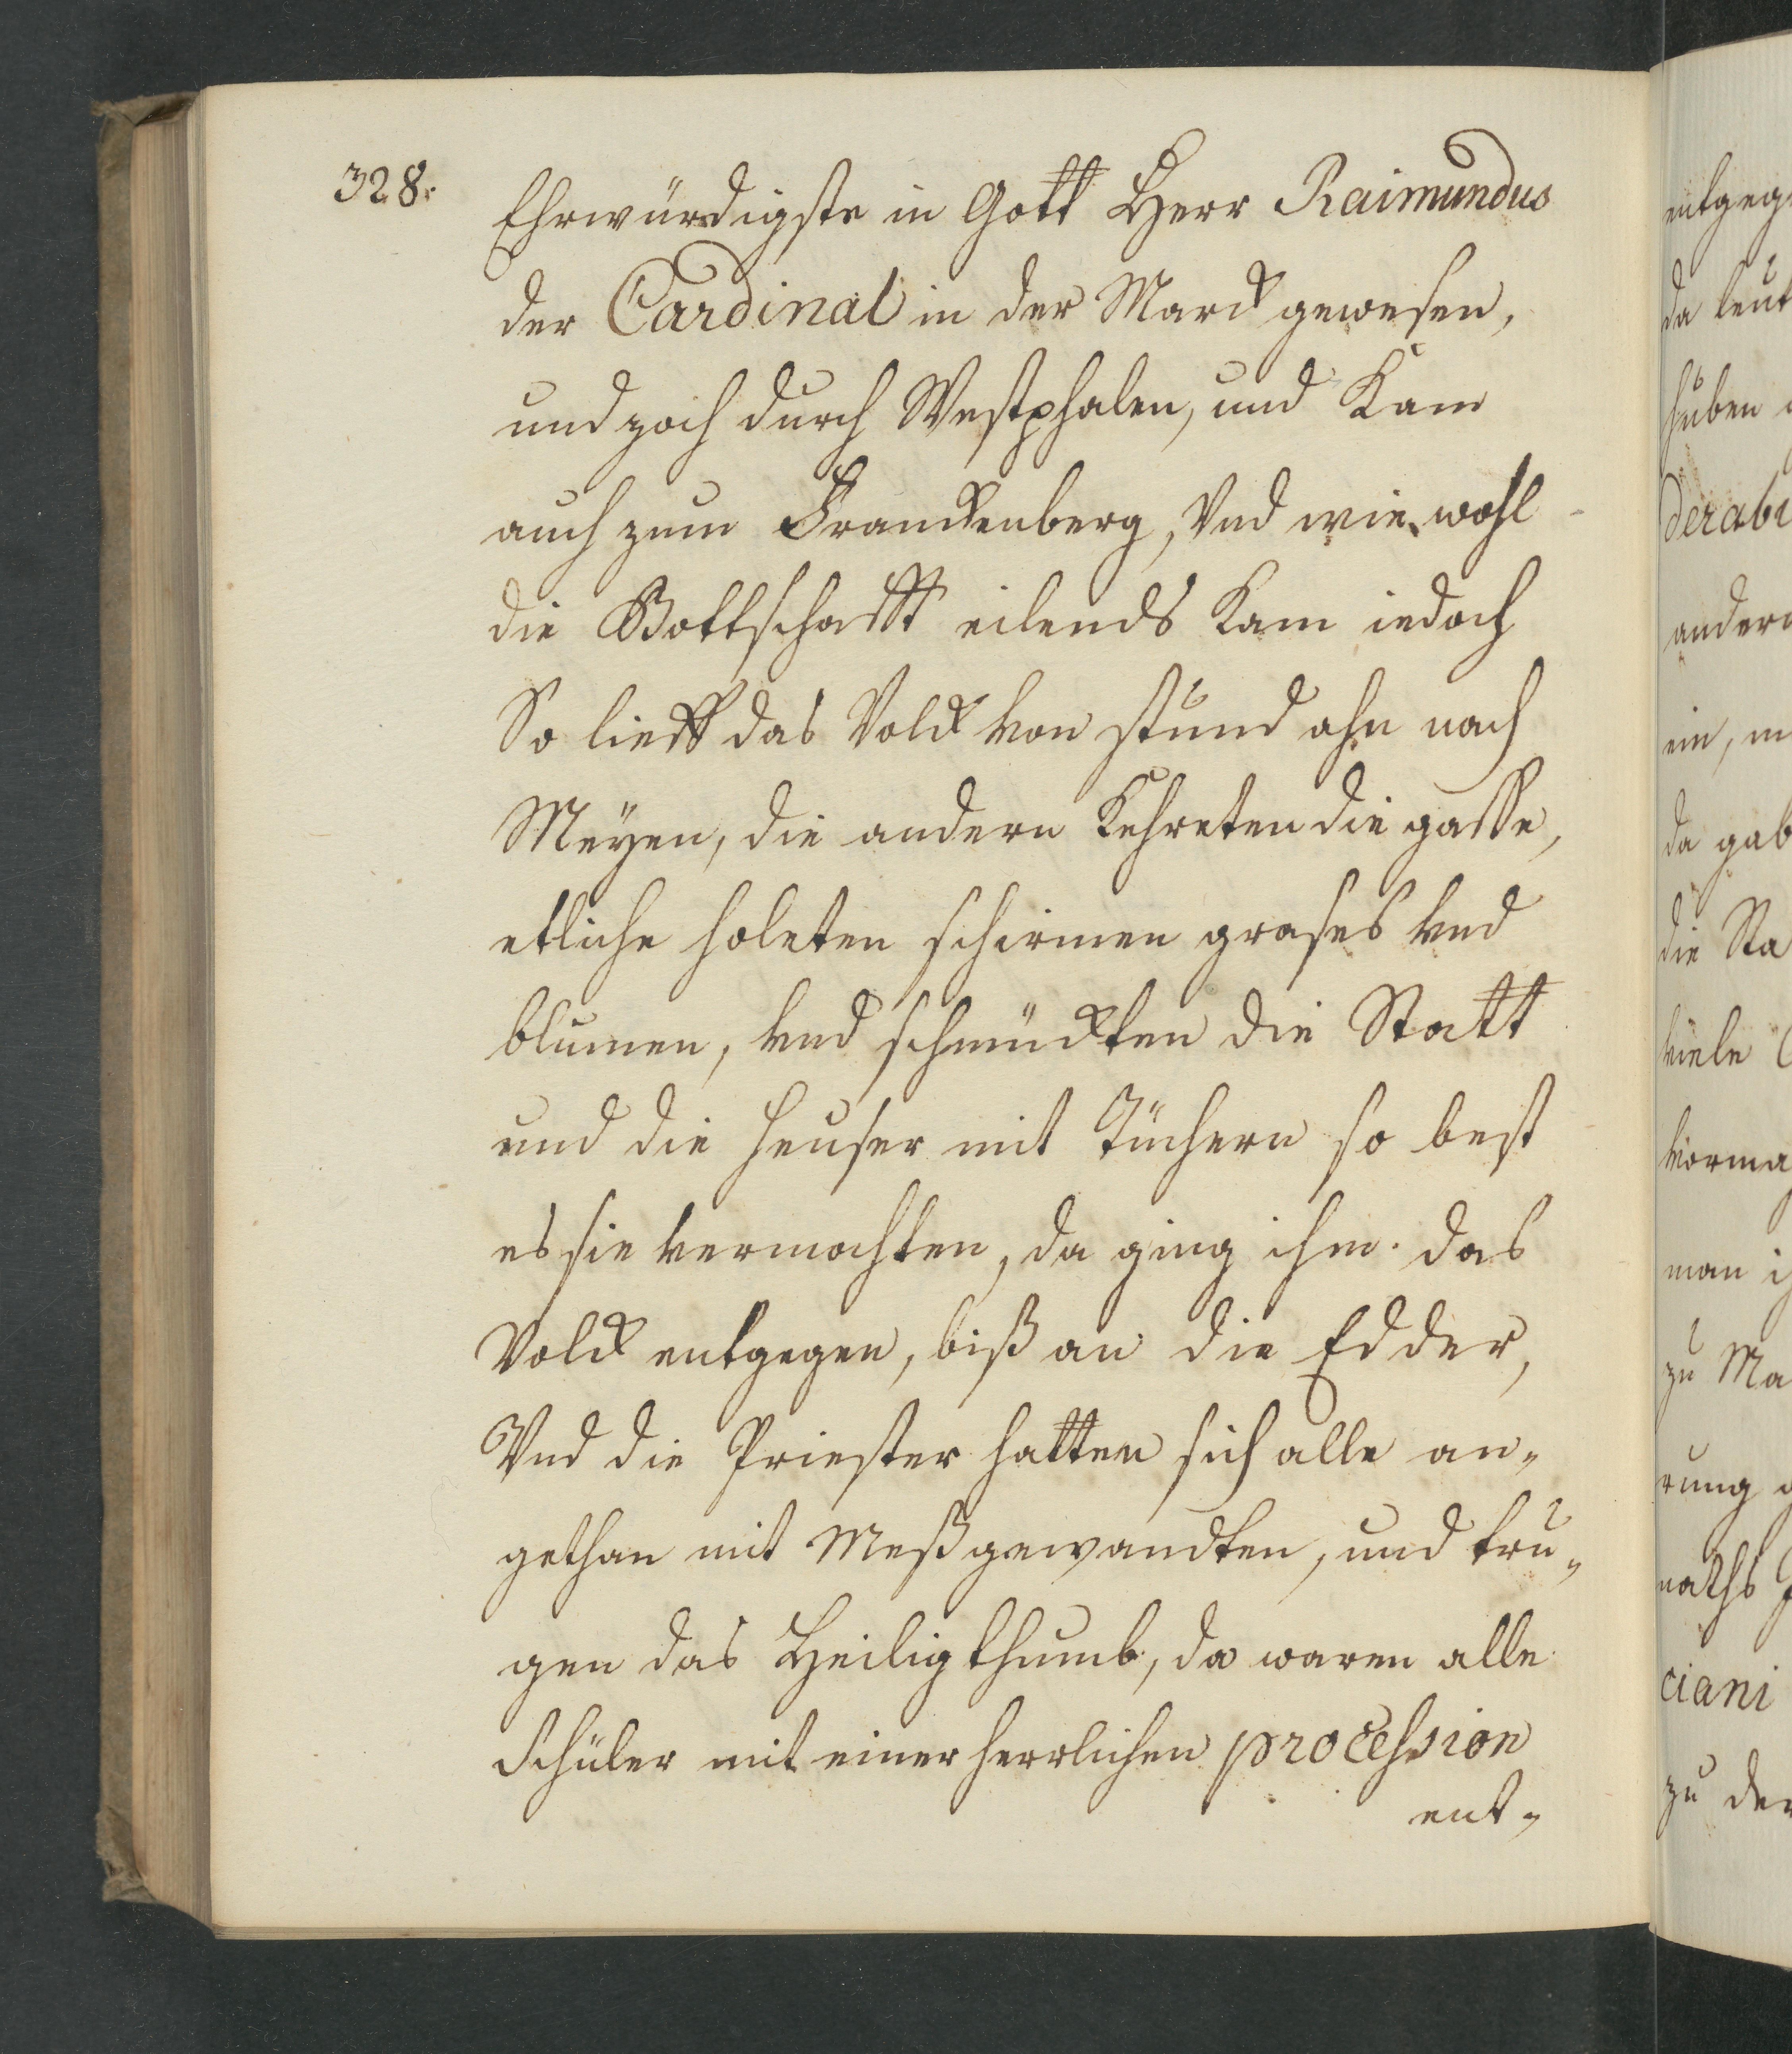 328.
Ehrwürdigste in Gott Herr Raimundus
der Cardinal in der Marck gewesen,
und zoch durch Westphalen, und Kam
auch zum Franckenberg, Vnd wie wohl
die Bottschafft eilends Kam iedoch
So lieff das Volck von stund ahn nach
Meÿen, die andern Kehreten die gasse,
etliche holeten schirmen grases vnd
blumen, vnd schmückten die Statt
und die heuser mit Tüchern so best
es sie vermochten, da ging ihm das
Volck entgegen, biß an die Edder,
Vnd die Priester hatten sich alle an„
gethan mit Meßgewandten, und tru„
gen das Heiligthumb, da waren alle
Schüler mit einer herrlichen procession
ent„
entgeg
da leut
huben
derabi
andern
ein, m
da gab
die Sta
viele
vorma
man i
zu Ma
rung
naths
ciani
zu der